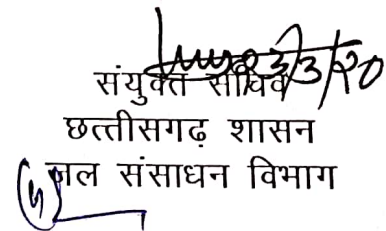 3/3/20
संयुक्त सचिव
छत्तीसगढ़ शासन
जल संसाधन विभाग